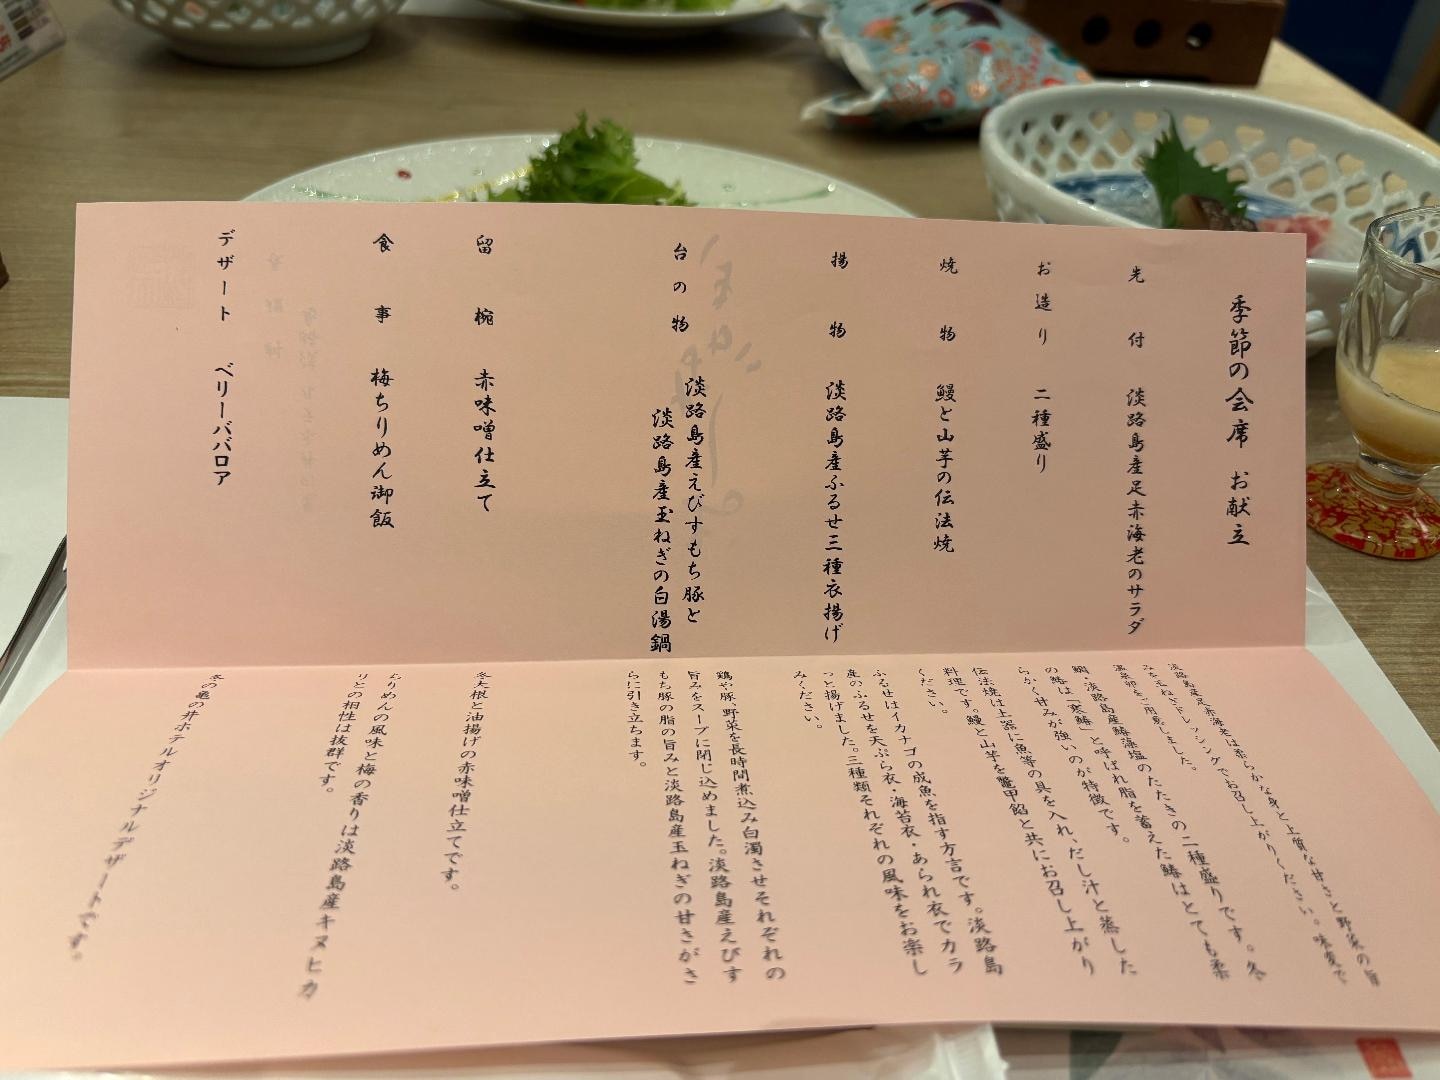 季節の会席 お献立
先付 淡路島産足赤海老のサラダ
お造り 二種盛り
焼物 鰻と山芋の伝法焼
揚物 淡路島産ふるせ三種衣揚げ
台の物 淡路島産えびすもち豚と
淡路島産玉ねぎの白湯鍋
留椀 赤味噌仕立て
食事 梅ちりめん御飯
デザート ベリーババロア
淡路島産足赤海老は柔らかな身と上質な甘さと野菜の旨
みを玉ねぎドレッシングでお召し上がりください。味変で
温泉卵をご用意しました。
鯛・淡路島産鰆藻塩のたたきの二種盛りです。冬
の鰆は「寒鰆」と呼ばれ脂を蓄えた鰆はとても柔
らかく甘みが強いのが特徴です。
伝法焼は土器に魚等の具を入れ、だし汁と蒸した
料理です。鰻と山芋を鼈甲餡と共にお召し上がり
ください。
ふるせはイカナゴの成魚を指す方言です。淡路島
産のふるせを天ぷら衣・海苔衣・あられ衣でカラ
っと揚げました。三種類それぞれの風味をお楽し
みください。
鶏や豚、野菜を長時間煮込み白濁させそれぞれの
旨みをスープに閉じ込めました。淡路島産えびす
もち豚の脂の旨みと淡路島産玉ねぎの甘さがさ
らに引き立ちます。
冬大根と油揚げの赤味噌仕立てです。
ちりめんの風味と梅の香りは淡路島産キヌヒカ
リとの相性は抜群です。
冬の亀の井ホテルオリジナルデザートです。